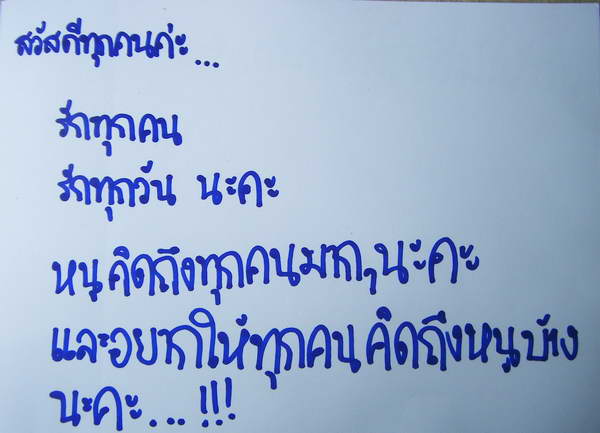 สวัสดีทุกคนค่ะ...
รักทุกคน
รักทุกวัน นะคะ
หนูคิดถึงทุกคนมาก,นะคะ
และอยากให้ทุกคนคิดถึงหนูบ้าง
นะคะ...!!!